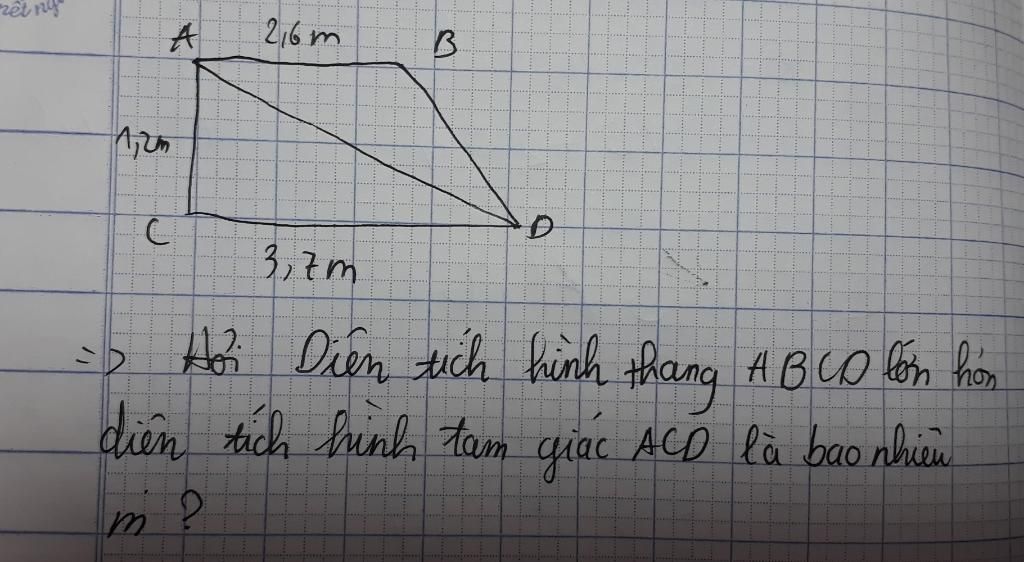 A 2,6 m B
1,2m
C D
3,7m
=> Hỏi Diện tích hình thang ABCD lớn hơn
diện tích hình tam giác ACD là bao nhiêu
m ?